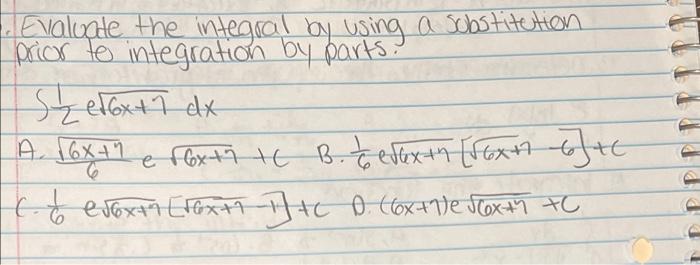 . Evaluate the integral by using a substitution
prior to integration by parts.
∫ 1/2 e√6x+7 dx
A. √6x+7/6 e √6x+7 +C B. 1/6 e√6x+7 [√6x+7 -6] +C
C. 1/6 e√6x+7 [√6x+7 -1] +C D. (6x+7)e √6x+7 +C